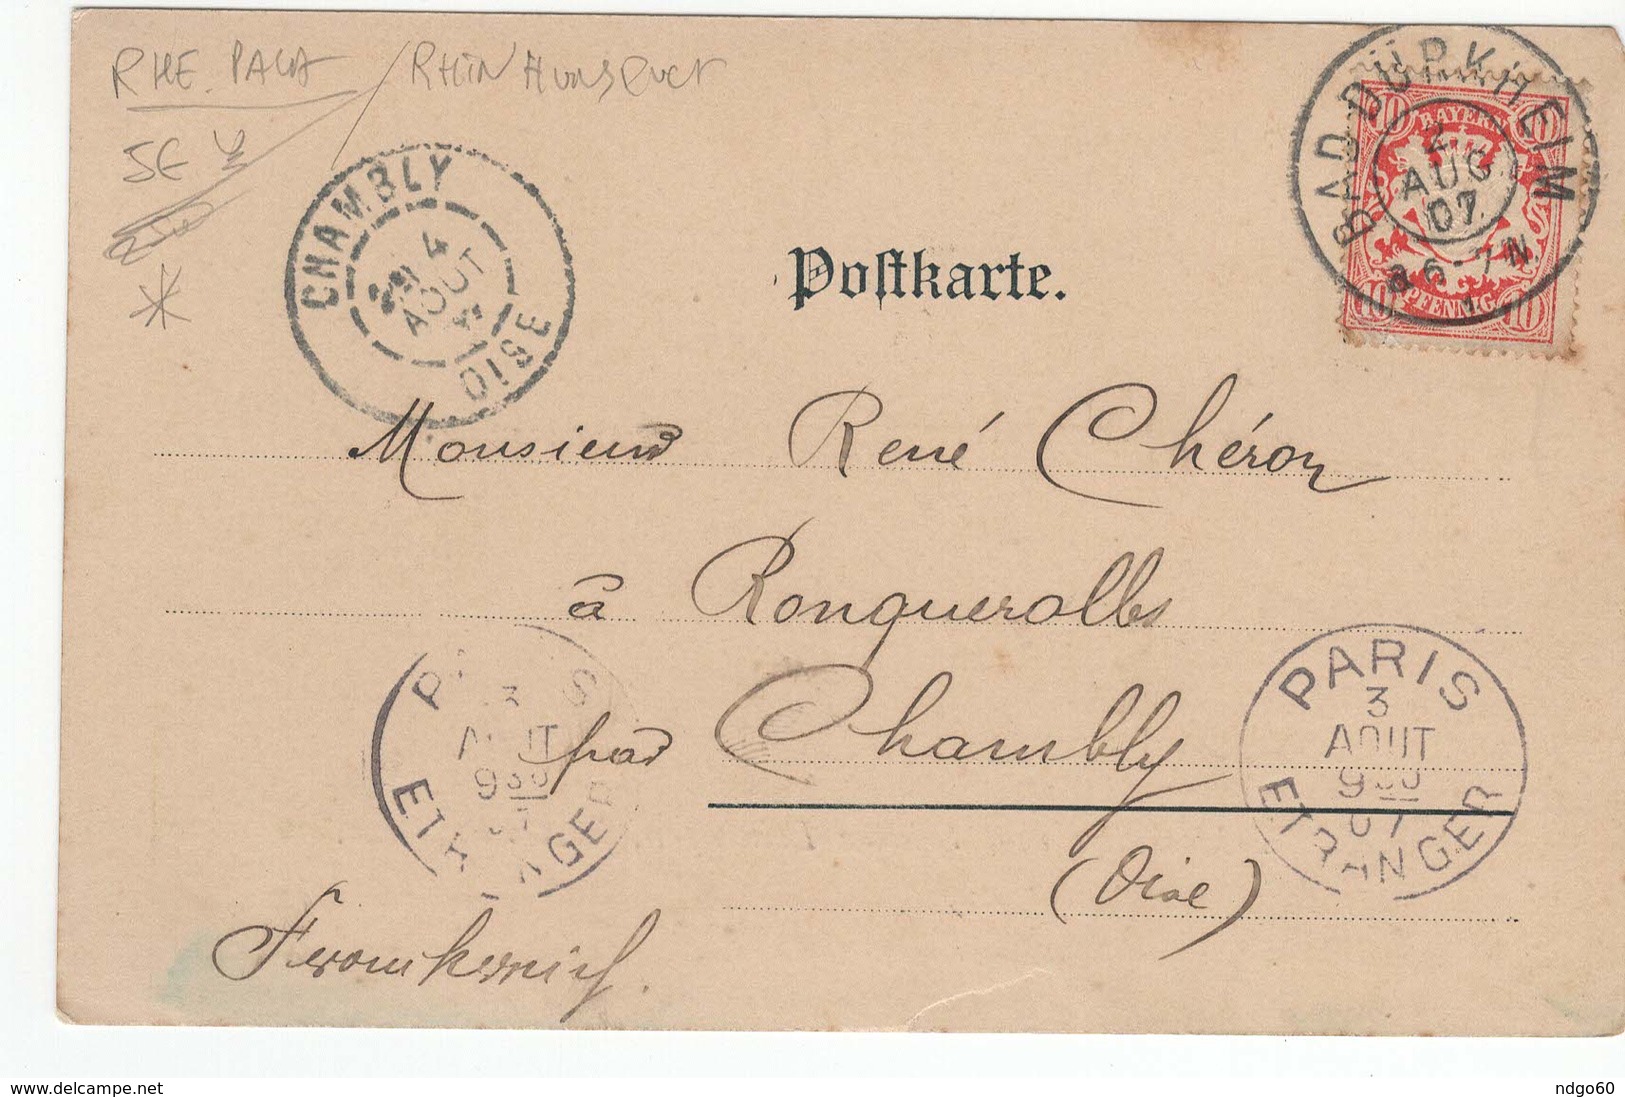 RHE. PALA / RHIN HUNSRUCK
5E
CHAMBLY
4
AOUT
OISE
BAD DÜRKHEIM
2
AUG
07
6-7 N.
10 BAYERN 10
10 PFENNIG 10
Postkarte.
Monsieur René Chéron
à Ronquerolles
par Chambly
(Oise)
Frankreich.
PARIS
3
AOUT
9 30
07
ETRANGER
PARIS
3
AOUT
9 30
07
ETRANGER
www.delcampe.net
ndgo60